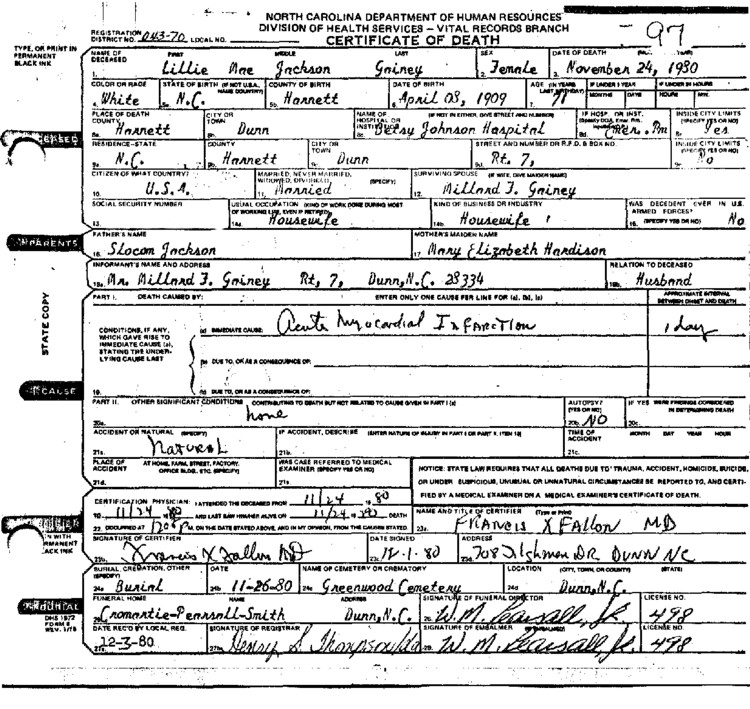 NORTH CAROLINA DEPARTMENT OF HUMAN RESOURCES
DIVISION OF HEALTH SERVICES – VITAL RECORDS BRANCH
CERTIFICATE OF DEATH
97
REGISTRATION DISTRICT NO. 043-70 LOCAL NO.
TYPE, OR PRINT IN PERMANENT BLACK INK
NAME OF DECEASED FIRST MIDDLE LAST SEX DATE OF DEATH
1. Lillie Mae Jackson Gainey 2. Female 3. November 24, 1980
COLOR OR RACE STATE OF BIRTH (IF NOT U.S.A., NAME COUNTRY) COUNTY OF BIRTH DATE OF BIRTH AGE (IN YEARS LAST BIRTHDAY) IF UNDER 1 YEAR IF UNDER 24 HOURS
MONTHS DAYS HOURS MIN.
4. White 5a. N.C. 5b. Harnett 6. April 03, 1909 7. 71
PLACE OF DEATH COUNTY CITY OR TOWN NAME OF HOSPITAL OR INSTITUTION (IF NOT IN EITHER, GIVE STREET AND NUMBER) IF HOSP. OR INST. INSIDE CITY LIMITS (SPECIFY YES OR NO)
8a. Harnett 8b. Dunn 8c. Betsy Johnson Hospital 8d. Emer. Rm 8e. Yes
RESIDENCE–STATE COUNTY CITY OR TOWN STREET AND NUMBER OR R.F.D. & BOX NO. INSIDE CITY LIMITS (SPECIFY YES OR NO)
9a. N.C. 9b. Harnett 9c. Dunn 9d. Rt. 7, 9e. No
CITIZEN OF WHAT COUNTRY? MARRIED, NEVER MARRIED, WIDOWED, DIVORCED, (SPECIFY) SURVIVING SPOUSE (IF WIFE, GIVE MAIDEN NAME)
10. U.S.A. 11. Married 12. Millard F. Gainey
SOCIAL SECURITY NUMBER USUAL OCCUPATION (KIND OF WORK DONE DURING MOST OF WORKING LIFE, EVEN IF RETIRED) KIND OF BUSINESS OR INDUSTRY WAS DECEDENT EVER IN U.S. ARMED FORCES? (SPECIFY YES OR NO)
13. 14a. Housewife 14b. Housewife 15. No
PARENTS
FATHER'S NAME MOTHER'S MAIDEN NAME
16. Slocom Jackson 17. Mary Elizabeth Hardison
INFORMANT'S NAME AND ADDRESS RELATION TO DECEASED
18a. Mr. Millard F. Gainey Rt, 7, Dunn, N.C. 28334 18b. Husband
STATE COPY
PART I. DEATH CAUSED BY: ENTER ONLY ONE CAUSE PER LINE FOR (a), (b), (c) APPROXIMATE INTERVAL BETWEEN ONSET AND DEATH
CONDITIONS, IF ANY, WHICH GAVE RISE TO IMMEDIATE CAUSE (a), STATING THE UNDERLYING CAUSE LAST
(a) IMMEDIATE CAUSE: Acute Myocardial Infarction 1 day
(b) DUE TO, OR AS A CONSEQUENCE OF:
19. (c) DUE TO, OR AS A CONSEQUENCE OF:
CAUSE
PART II. OTHER SIGNIFICANT CONDITIONS CONTRIBUTING TO DEATH BUT NOT RELATED TO CAUSE GIVEN IN PART I (a) AUTOPSY? (YES OR NO) IF YES WERE FINDINGS CONSIDERED IN DETERMINING DEATH
20a. none 20b. NO 20c.
ACCIDENT OR NATURAL (SPECIFY) IF ACCIDENT, DESCRIBE (ENTER NATURE OF INJURY IN PART I OR PART II, ITEM 19) TIME OF ACCIDENT MONTH DAY YEAR HOUR
21a. Natural 21b. 21c.
PLACE OF ACCIDENT AT HOME, FARM, STREET, FACTORY, OFFICE BLDG., ETC. (SPECIFY) WAS CASE REFERRED TO MEDICAL EXAMINER (SPECIFY YES OR NO)
21d. 21e.
NOTICE: STATE LAW REQUIRES THAT ALL DEATHS DUE TO TRAUMA, ACCIDENT, HOMICIDE, SUICIDE, OR UNDER SUSPICIOUS, UNUSUAL OR UNNATURAL CIRCUMSTANCES BE REPORTED TO, AND CERTIFIED BY A MEDICAL EXAMINER ON A MEDICAL EXAMINER'S CERTIFICATE OF DEATH.
CERTIFICATION PHYSICIAN: I ATTENDED THE DECEASED FROM 11/24 1980
TO 11/24 1980 AND LAST SAW HIM/HER ALIVE ON 11/24 1980 DEATH
22. OCCURRED AT M. ON THE DATE STATED ABOVE, AND IN MY OPINION, FROM THE CAUSES STATED
NAME AND TITLE OF CERTIFIER (Type or Print)
23a. FRANCIS X FALLON MD
SIGNATURE OF CERTIFIER DATE SIGNED ADDRESS
23b. Francis X Fallon MD 23c. 12-1-80 23d. 708 Tilghman DR. DUNN NC
BURIAL, CREMATION, OTHER (SPECIFY) DATE NAME OF CEMETERY OR CREMATORY LOCATION (CITY, TOWN, OR COUNTY) (STATE)
24a. Burial 24b. 11-26-80 24c. Greenwood Cemetery 24d. Dunn, N.C.
FUNERAL HOME NAME ADDRESS SIGNATURE OF FUNERAL DIRECTOR LICENSE NO.
25. Cromartie-Pearsall-Smith Dunn, N.C. 26. W. M. Pearsall, Jr. 498
DATE REC'D BY LOCAL REG. SIGNATURE OF REGISTRAR SIGNATURE OF EMBALMER LICENSE NO.
27a. 12-3-80 27b. Henry S. Thompson 28. W. M. Pearsall, Jr. 498
BURIAL
DHS 1872
FORM 8
REV. 1/78